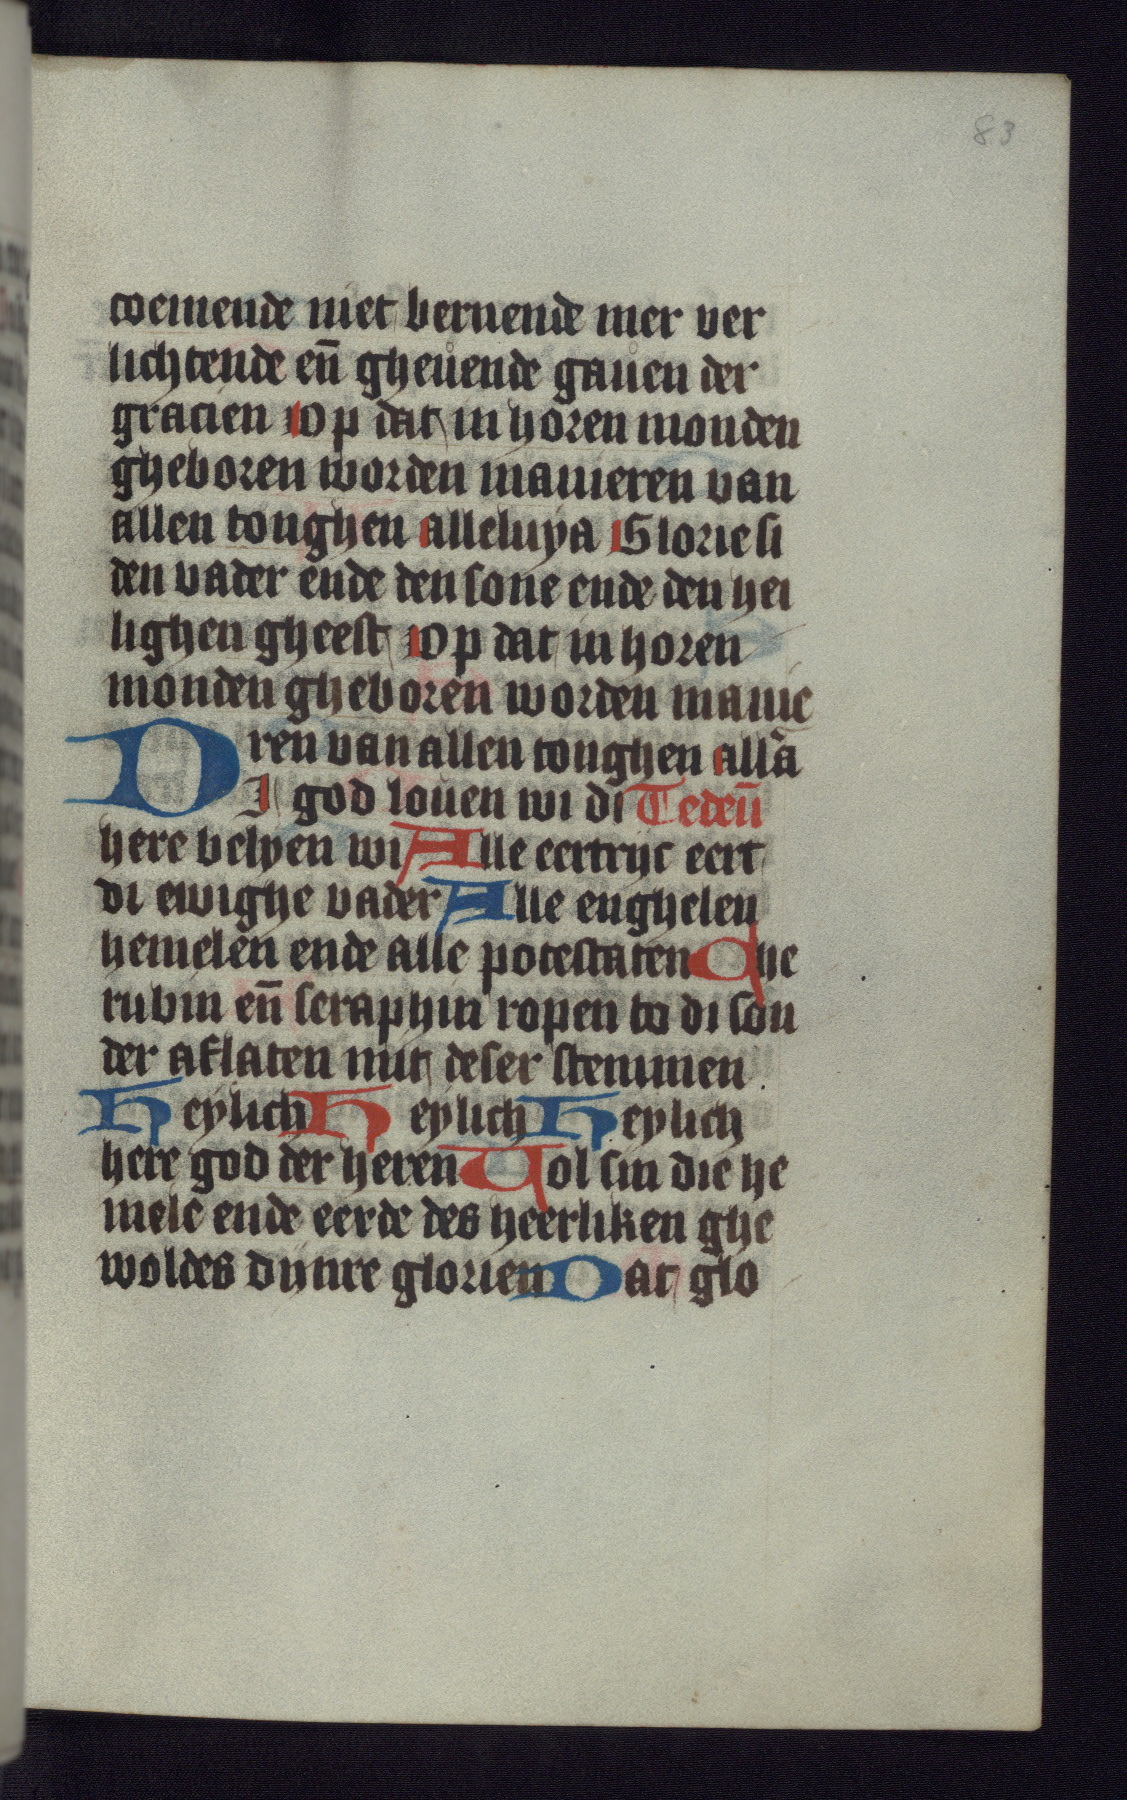 83
coemende niet bernende mer ver
lichtende en̄ gheuende gauen der
gracien Op dat in horen monden
gheboren worden manieren van
allen tonghen alleluya Glorie si
den vader ende den sone ende den hei
lighen gheest Op dat in horen
monden gheboren worden manie
ren van allen tonghen all'a
DI god louen wi di Te deū
here belyen wi Alle eertrijc eert
di ewighe vader Alle enghelen
hemelen ende alle potestaten Che
rubin en̄ seraphin ropen to di son
der aflaten mit deser stemmen
Heylich Heylich Heylich
here god der heren Vol sin die he
mele ende eerde des heerliken ghe
woldes dijnre glorien Dat glo